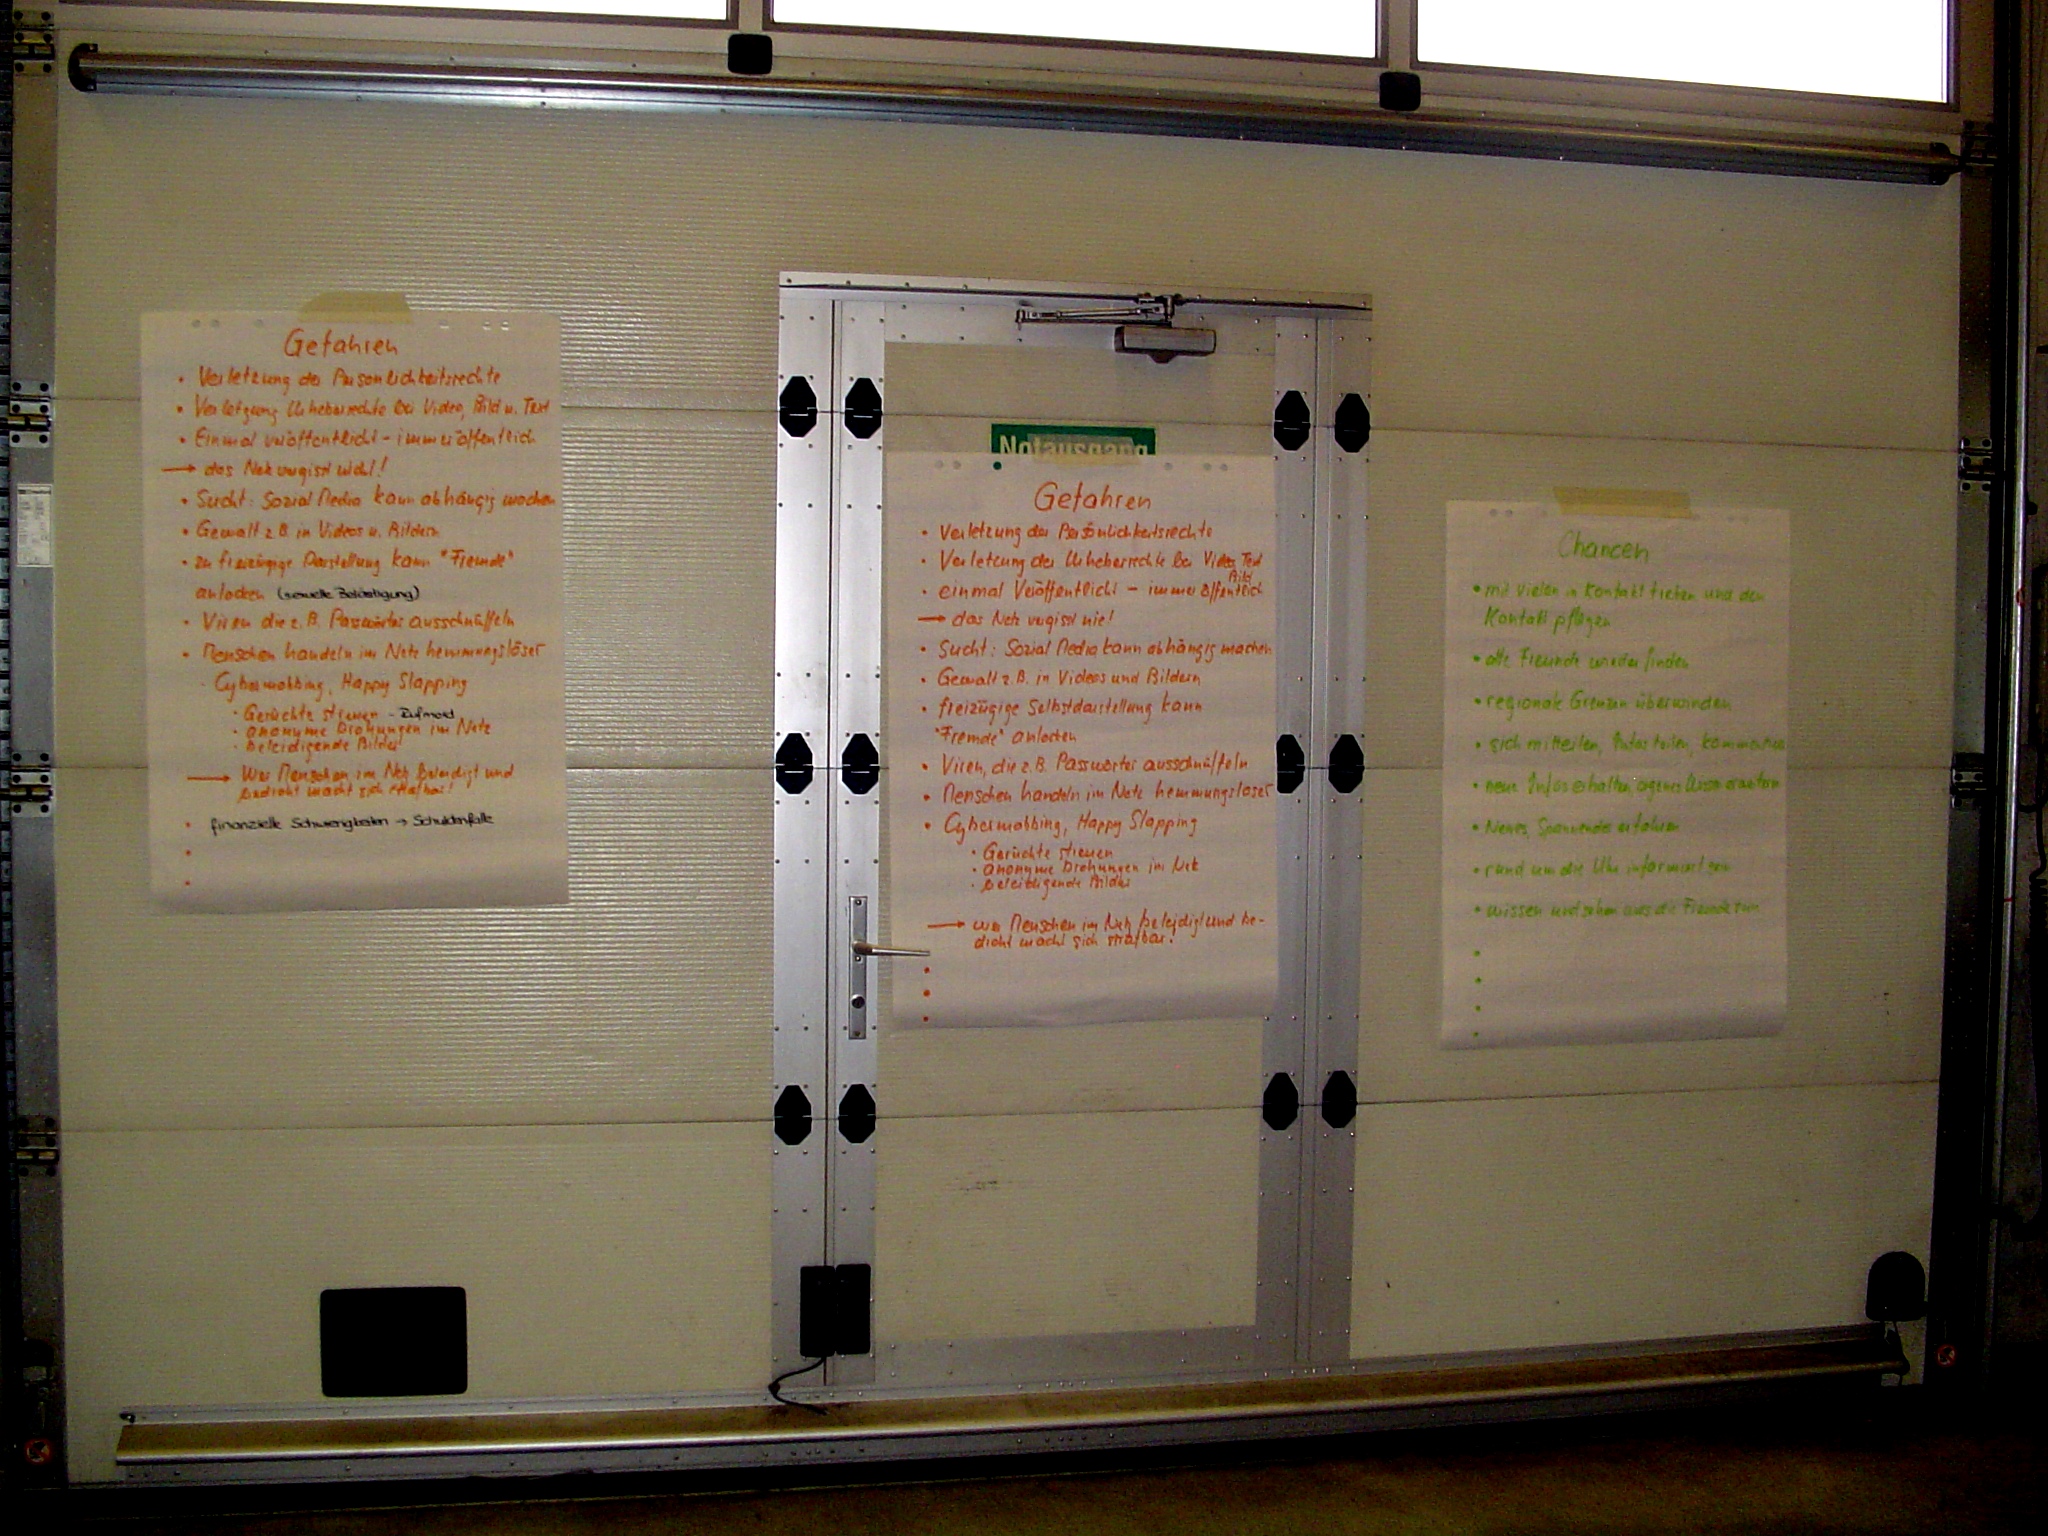 Gefahren
• Verletzung der Persönlichkeitsrechte
• Verletzung Urheberrechte bei Video, Bild u. Text
• Einmal veröffentlicht - immer öffentlich
→ das Netz vergisst
• Sucht: Sozial Media kann abhängig machen
• Gewalt z.B. in Videos u. Bildern
• zu freizügige Darstellung kann "Fremde"
anlocken (sexuelle Belästigung)
• Viren die z.B. Passwörter ausschnüffeln
• Menschen handeln im Netz hemmungsloser
· Cybermobbing, Happy Slapping
· Gerüchte streuen - Rufmord
· anonyme Drohungen im Netz
· beleidigende Bilder
→ Wer Menschen im Netz beleidigt und
bedroht macht sich strafbar!
• finanzielle Schwierigkeiten → Schuldenfalle
Notausgang
Gefahren
• Verletzung der Persönlichkeitsrechte
• Verletzung der Urheberrechte bei Video Text
Bild
• einmal Veröffentlicht - immer öffentlich
→ das Netz vergisst nie!
• Sucht: Sozial Media kann abhängig machen
• Gewalt z.B. in Videos und Bildern
• freizügige Selbstdarstellung kann
"Fremde" anlocken
• Viren, die z.B. Passwörter ausschnüffeln
• Menschen handeln im Netz hemmungsloser
• Cybermobbing, Happy Slapping
· Gerüchte streuen
· anonyme Drohungen im Netz
· beleidigende Bilder
→ wer Menschen im Netz beleidigt und be-
droht macht sich strafbar!
Chancen
• mit vielen in Kontakt treten und den
Kontakt pflegen
• alte Freunde wieder finden
• regionale Grenzen überwinden
• sich mitteilen, Infos teilen, kommentieren
• neue Infos erhalten, eigenes Wissen erweitern
• Neues, Spannendes erfahren
• rund um die Uhr informiert sein
• wissen und sehen was die Freunde tun